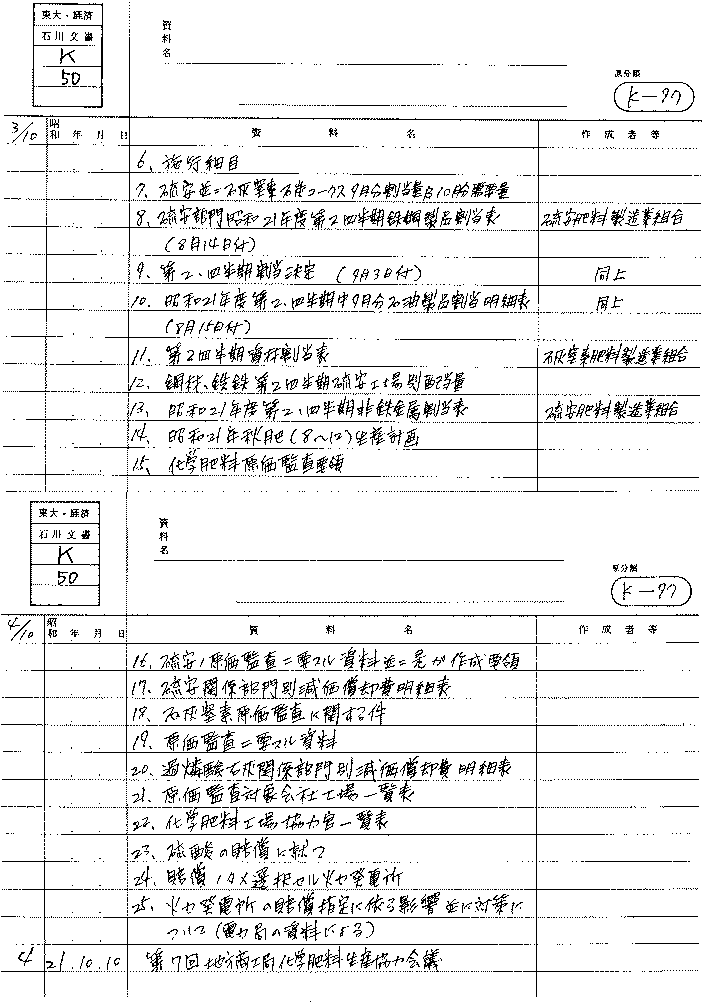 東大・経済
石川文叢
K
50
資料名
原分類
K-97
3/10 昭和 年 月 日 資料名 作成者等
6、施行細目
7、硫安並ニ石灰窒素石炭コークス9月分割当量及10月分需要量
8、硫安部門昭和21年度第2四半期鉄鋼製品割当表 硫安肥料製造業組合
(8月14日付)
9、第2、四半期割当決定 (9月3日付) 同上
10、昭和21年度第2、四半期中9月分石油製品割当明細表 同上
(8月15日付)
11、第2四半期資材割当表 石灰窒素肥料製造業組合
12、鋼材、銑鉄第2四半期硫安工場別配当量
13、昭和21年度第2、四半期非鉄金属割当表 硫安肥料製造業組合
14、昭和21年秋肥(8〜12)生産計画
15、化学肥料原価監査要領
東大・経済
石川文叢
K
50
資料名
原分類
K-97
4/10 昭和 年 月 日 資料名 作成者等
16、硫安ノ原価監査ニ要スル資料並ニ是が作成要領
17、硫安関係部門別減価償却費明細表
18、石灰窒素原価監査に関する件
19、原価監査ニ要スル資料
20、過燐酸石灰関係部門別減価償却費明細表
21、原価監査対象会社工場一覧表
22、化学肥料工場協力官一覧表
23、硫酸の賠償に就て
24、賠償ノタメ選択セル火力発電所
25、火力発電所の賠償指定に依る影響並に対策に
ついて(電力局の資料による)
4 21.10.10 第7回地方商工局化学肥料生産協力会議